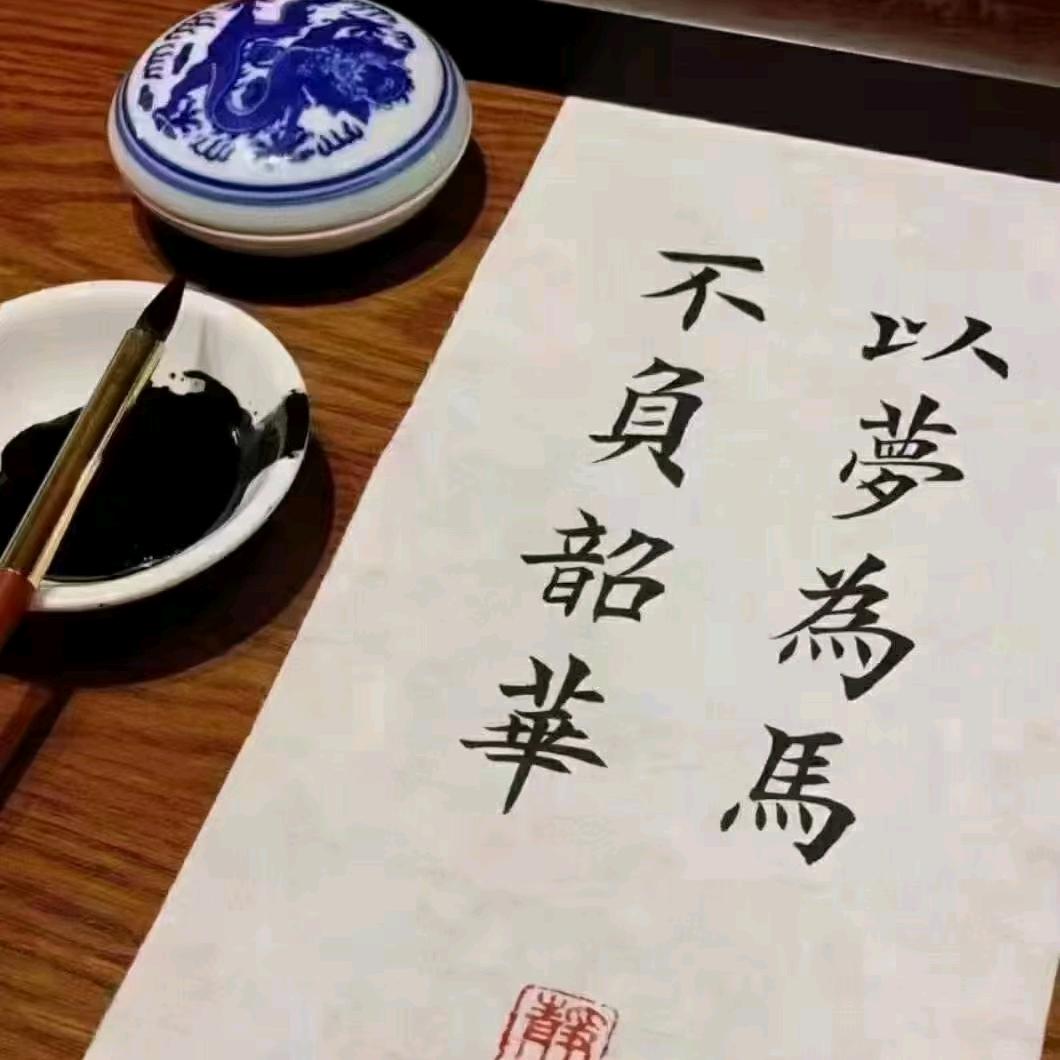 以夢為馬
不負韶華
靜